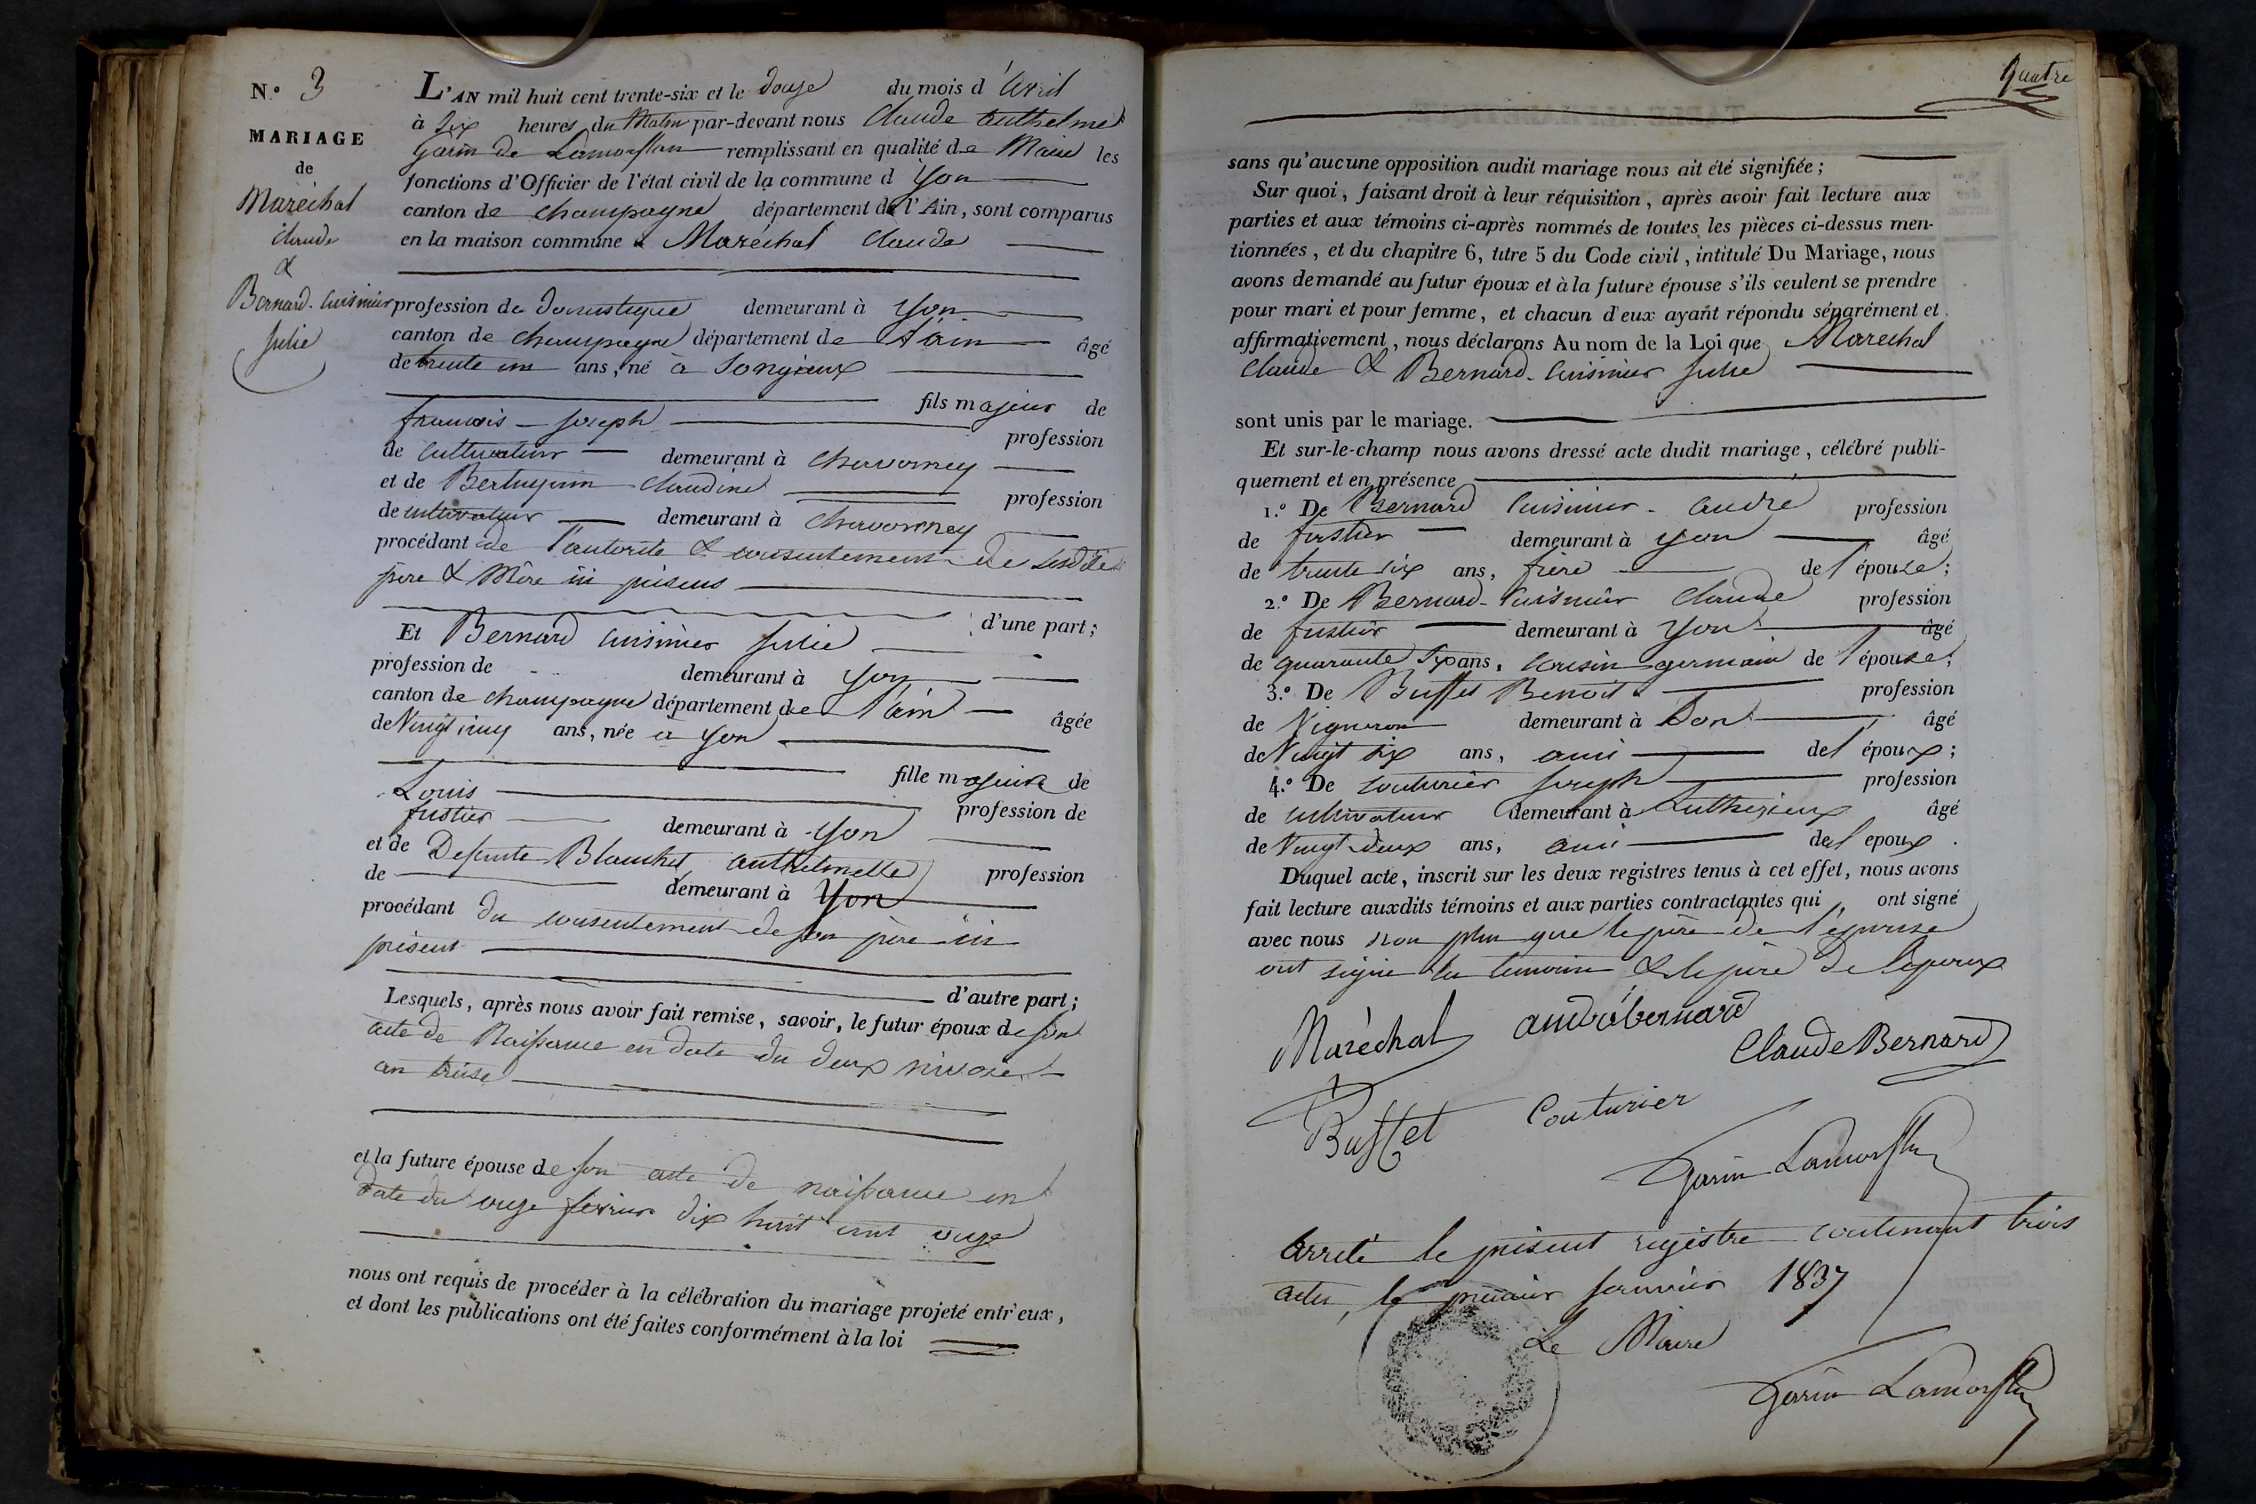 N.º 3
MARIAGE
de
Maréchal
claude
&
Bernard-Cuisinier
Julie
L'AN mil huit cent trente-six et le douze du mois d'Avril
à Six heures du Matin par-devant nous Claude Anthelme
Garin de Lamorflan remplissant en qualité de Maire les
fonctions d'Officier de l'état civil de la commune d Yon
canton de champagne département de l'Ain, sont comparus
en la maison commune Maréchal Claude
profession de domestique demeurant à Yon
canton de champagne département de l'ain âgé
de trente un ans, né à Songieux
fils majeur de
francois-joseph profession
de cultivateur demeurant à charvorney
et de claudine profession
de cultivateur demeurant à charvorney
procédant de l'autorité & consentement de sesdits
père & mère ici présens
d'une part;
Et Bernard cuisinier julie
profession de demeurant à Yon
canton de champagne département de l'ain âgée
de Vingt cinq ans, née à Yon
fille majeure de
Louis profession de
fustier demeurant à Yon
et de Defunte Blanchet anthelmette profession
de demeurant à Yon
procédant du consentement de son père ici
présent
d'autre part;
Lesquels, après nous avoir fait remise, savoir, le futur époux de son
acte de Naissance en date du deux nivose
an treise
et la future épouse de son acte de naissance en
date du onze fevrier dix huit cent onze
nous ont requis de procéder à la célébration du mariage projeté entr'eux,
et dont les publications ont été faites conformément à la loi
Quatre
sans qu'aucune opposition audit mariage nous ait été signifiée;
Sur quoi, faisant droit à leur réquisition, après avoir fait lecture aux
parties et aux témoins ci-après nommés de toutes les pièces ci-dessus men-
tionnées, et du chapitre 6, titre 5 du Code civil, intitulé Du Mariage, nous
avons demandé au futur époux et à la future épouse s'ils veulent se prendre
pour mari et pour femme, et chacun d'eux ayant répondu séparément et
affirmativement, nous déclarons Au nom de la Loi que Marechal
Claude & Bernard-Cuisinier Julie
sont unis par le mariage.
Et sur-le-champ nous avons dressé acte dudit mariage, célébré publi-
quement et en présence
1.º De Bernard Cuisinier-andré profession
de fustier demeurant à yon âgé
de trente six ans, frère de l'épouse;
2.º De Bernard-Cuisinier Claude profession
de fustier demeurant à Yon âgé
de quarante Six ans, cousin germain de l'épouse;
3.º De Buffet Benoit profession
de Vigneron demeurant à Don âgé
de Vingt six ans, ami de l'époux;
4.º De couturier Joseph profession
de cultivateur demeurant à Luthezieux âgé
de Vingt-deux ans, ami de l'epoux.
Duquel acte, inscrit sur les deux registres tenus à cet effet, nous avons
fait lecture auxdits témoins et aux parties contractantes qui ont signé
avec nous non plus que le père de l'épouse
ont signé les temoins & le père de l'epoux
Maréchal andrébernard
Claude Bernard
Buffet Couturier
Garin Lamorflan
Arreté le présent registre contenant trois
actes, le premier janvier 1837
Le Maire
Garin Lamorflan